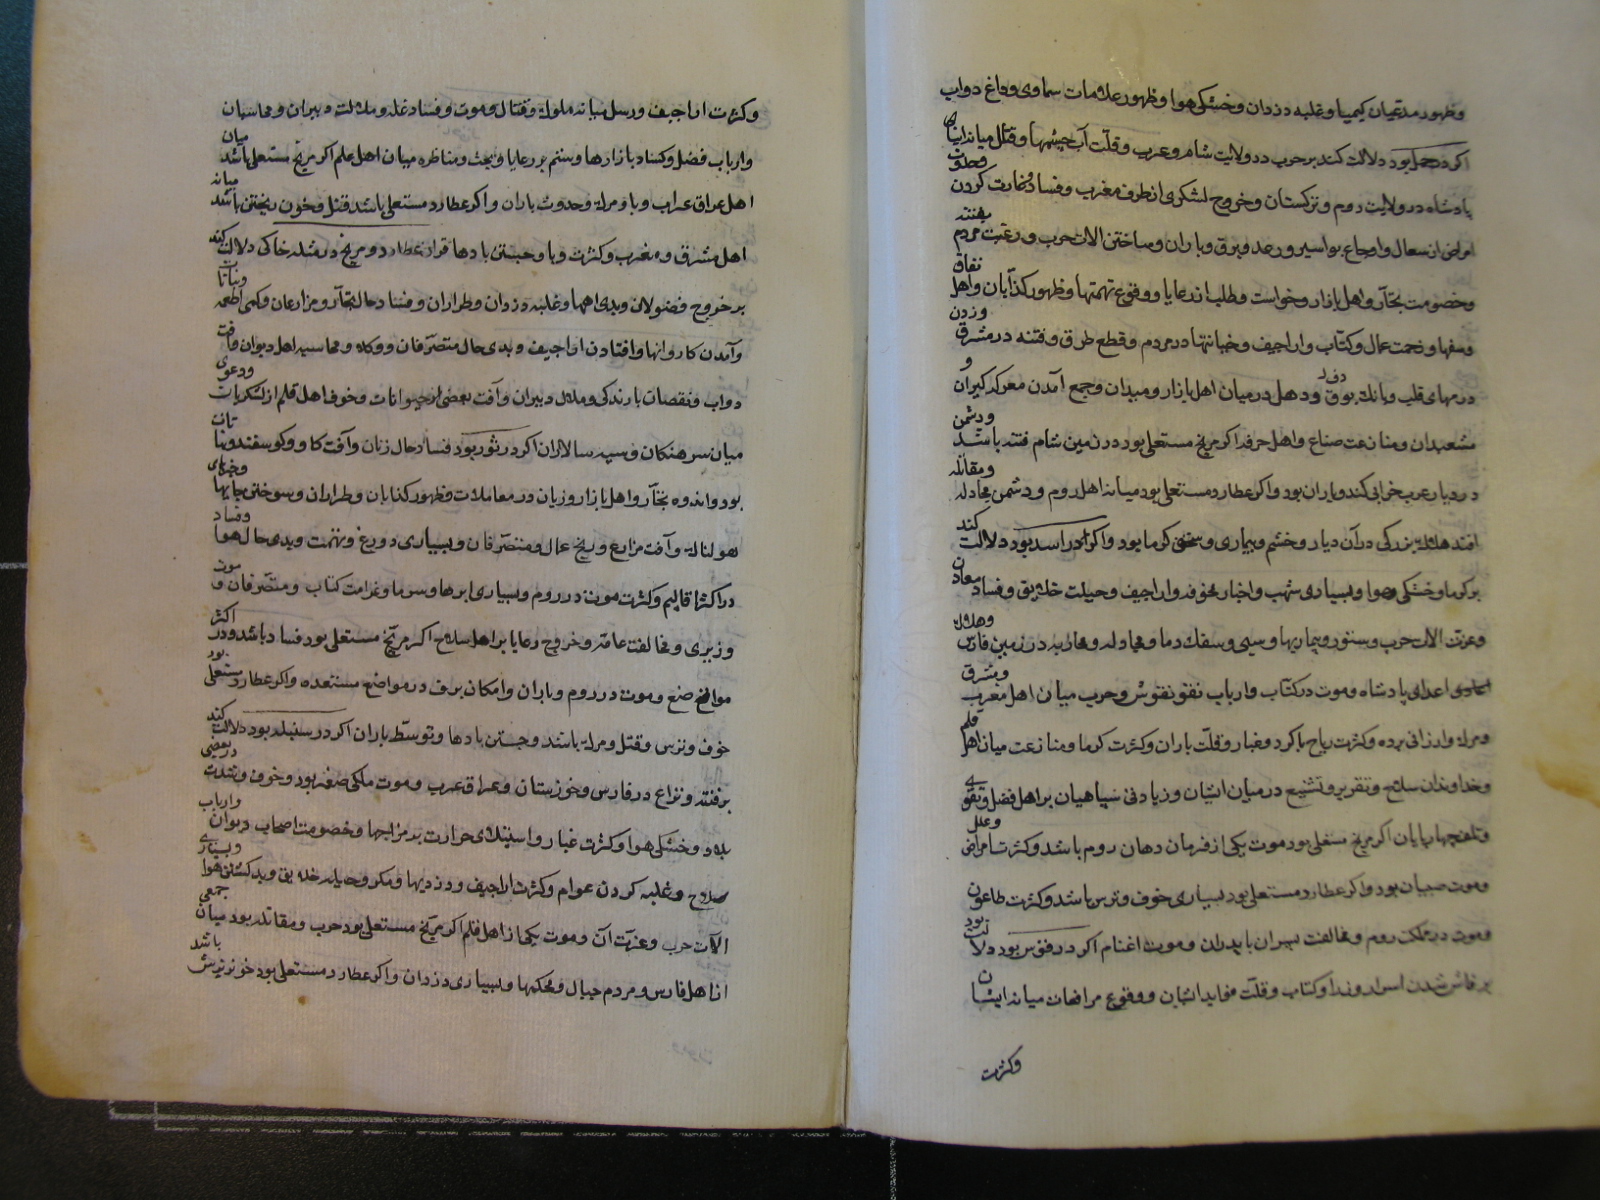 وظهور مدعیان کیمیا وغلبه دزدان وخشکی هوا وظهور علامات سماوی وداغ دواب
اکر در حمل بود دلالت کند بر حرب در ولایت شام وعرب وقلت آب چشمها وقتال میان
پادشاه در ولایت روم وترکستان وخروج لشکری از طرف مغرب وفساد وغارت کردن وحدوث
امراض از سعال واوجاع بواسیر ورعد وبرق وباران وساختن الات حرب ورغبت مردم بفتنه
وخصومت تجار واهل بازار وخواست وطلب از رعایا ووقوع تهمتها وظهور کذابان واهل نفاق
وسفها وزحمت عمال وکتاب واراجیف وخیانتها در مردم وقطع طرق وفتنه در مشرق وزدن
درمهای قلب وبانك بوق ودهل در میان اهل بازار ومیدان وجمع آمدن معرکه کیران و
مشعبدان ومنازعت صناع واهل حرف اکر مریخ مستعلی بود در زمین شام فتنه باشد ودشمن
در دیار عرب خرابی کند وباران بود واکر عطارد مستعلی بود میانه اهل روم ودشمن مجادله ومقاتله
افتد بزرکی در آن دیار وخشم وبیماری وسختی کرما بود واکر در اسد بود دلالت کند
بر کرما وخشکی هوا وبسیاری شهب واخبار مخوف واراجیف وحیلت خلایق وفساد معادن
وعزت الات حرب وستور وبیماریها وسبی وسفك دما ومجادله ومحاربه در زمین فارس وهلاك
اعدای پادشاه وموت در کتاب وارباب نفوس وحرب میان اهل مغرب ومشرق
وارزانی برده وکثرت ریاح باکرد وغبار وقلت باران وکثرت کرما ومنازعت میان اهل قلم
وخداوندان سلاح وتقریر وتشنیع در میان ایشان وزیادتی سپاهیان بر اهل فضل وتقوی
اکر مریخ مستعلی بود موت یکی از فرمان دهان روم باشد وکثرت امراض وعلل
وموت صبیان بود واکر عطارد مستعلی بود بسیاری خوف وترس باشد وکثرت طاعون
وموت در مملکت روم ومخالفت پسران با پدران وموت اغنام اکر در قوس بود دلالت بود
بر فاش شدن اسرار وکتاب وقلت فواید ایشان ووقوع مرافعات میانه ایشان
وکثرت
وکثرت اراجیف ورسل میانه ملوك وقتال وموت وفساد غله وملالت دبیران ومحاسبان
وارباب فضل وکساد بازارها وستم بر رعایا وبحث ومناظره میان اهل علم اکر مریخ مستعلی باشد میان
اهل عراق عرب وبا ومرك وحدوث باران واکر عطارد مستعلی باشد قتل وخون ریختن باشد میانه
اهل مشرق ومغرب وکثرت وبا وجستن بادها قران عطارد ومریخ در مثلثه خاکی دلالت کند
بر خروج فضولان وبدی راهها وغلبه دزدان وطراران وفساد حال تجار ومزارعان وکمی اطعمه ونباتات
وآمدن کاروانها وافتادن اراجیف وبدی حال متصرفان ووکلا ومحاسبه اهل دیوان وآفت
دواب ونقصان بارندکی وملال دبیران وآفت بعضی از حیوانات وخوف اهل قلم از لشکریان ودعوی
میان سرهنکان وسپه سالاران اکر در ثور بود فساد حال زنان وآفت کاو وکوسفند ونباتات
بود واندوه تجار واهل بازار وزیان در معاملات وظهور کذابان وطراران وسوختن جایها وخبرهای
هولناك وآفت مزارع ورنج عمال ومتصرفان وبسیاری دروغ وتهمت وبدی حال هوا وفساد
در اکثر اقالیم وکثرت موت در روم وبسیاری ابرها وسرما وغرامت کتاب ومتصرفان وموت
وزیری ومخالفت عامه وخروج رعایا بر اهل سلاح اکر مریخ مستعلی بود فساد باشد ودر اکثر
مواضع وموت در روم وباران وامکان برف در مواضع مستعده واکر عطارد مستعلی بود
خوف وترس وقتل ومرك باشد وجستن بادها وتوسط باران اکر در سنبله بود دلالت کند
بر فتنه ونزاع در فارس وخوزستان وعراق عرب وموت ملکی بود وخوف وشدت در بعضی
بلاد وخشکی هوا وکثرت غبار واستیلای حرارت بر مزاجها وخصومت اصحاب دیوان وارباب
صلاح وغلبه کردن عوام وکثرت اراجیف ودزدیها ومکر وحیله خلایق وبد کشتن هوا وبسیاری
الات حرب وعزت آن وموت یکی از اهل قلم اکر مریخ مستعلی بود حرب ومقاتله بود میان جمعی
از اهل فارس ومردم جبال ومحکمها وبسیاری دزدان واکر عطارد مستعلی بود خونریزش باشد